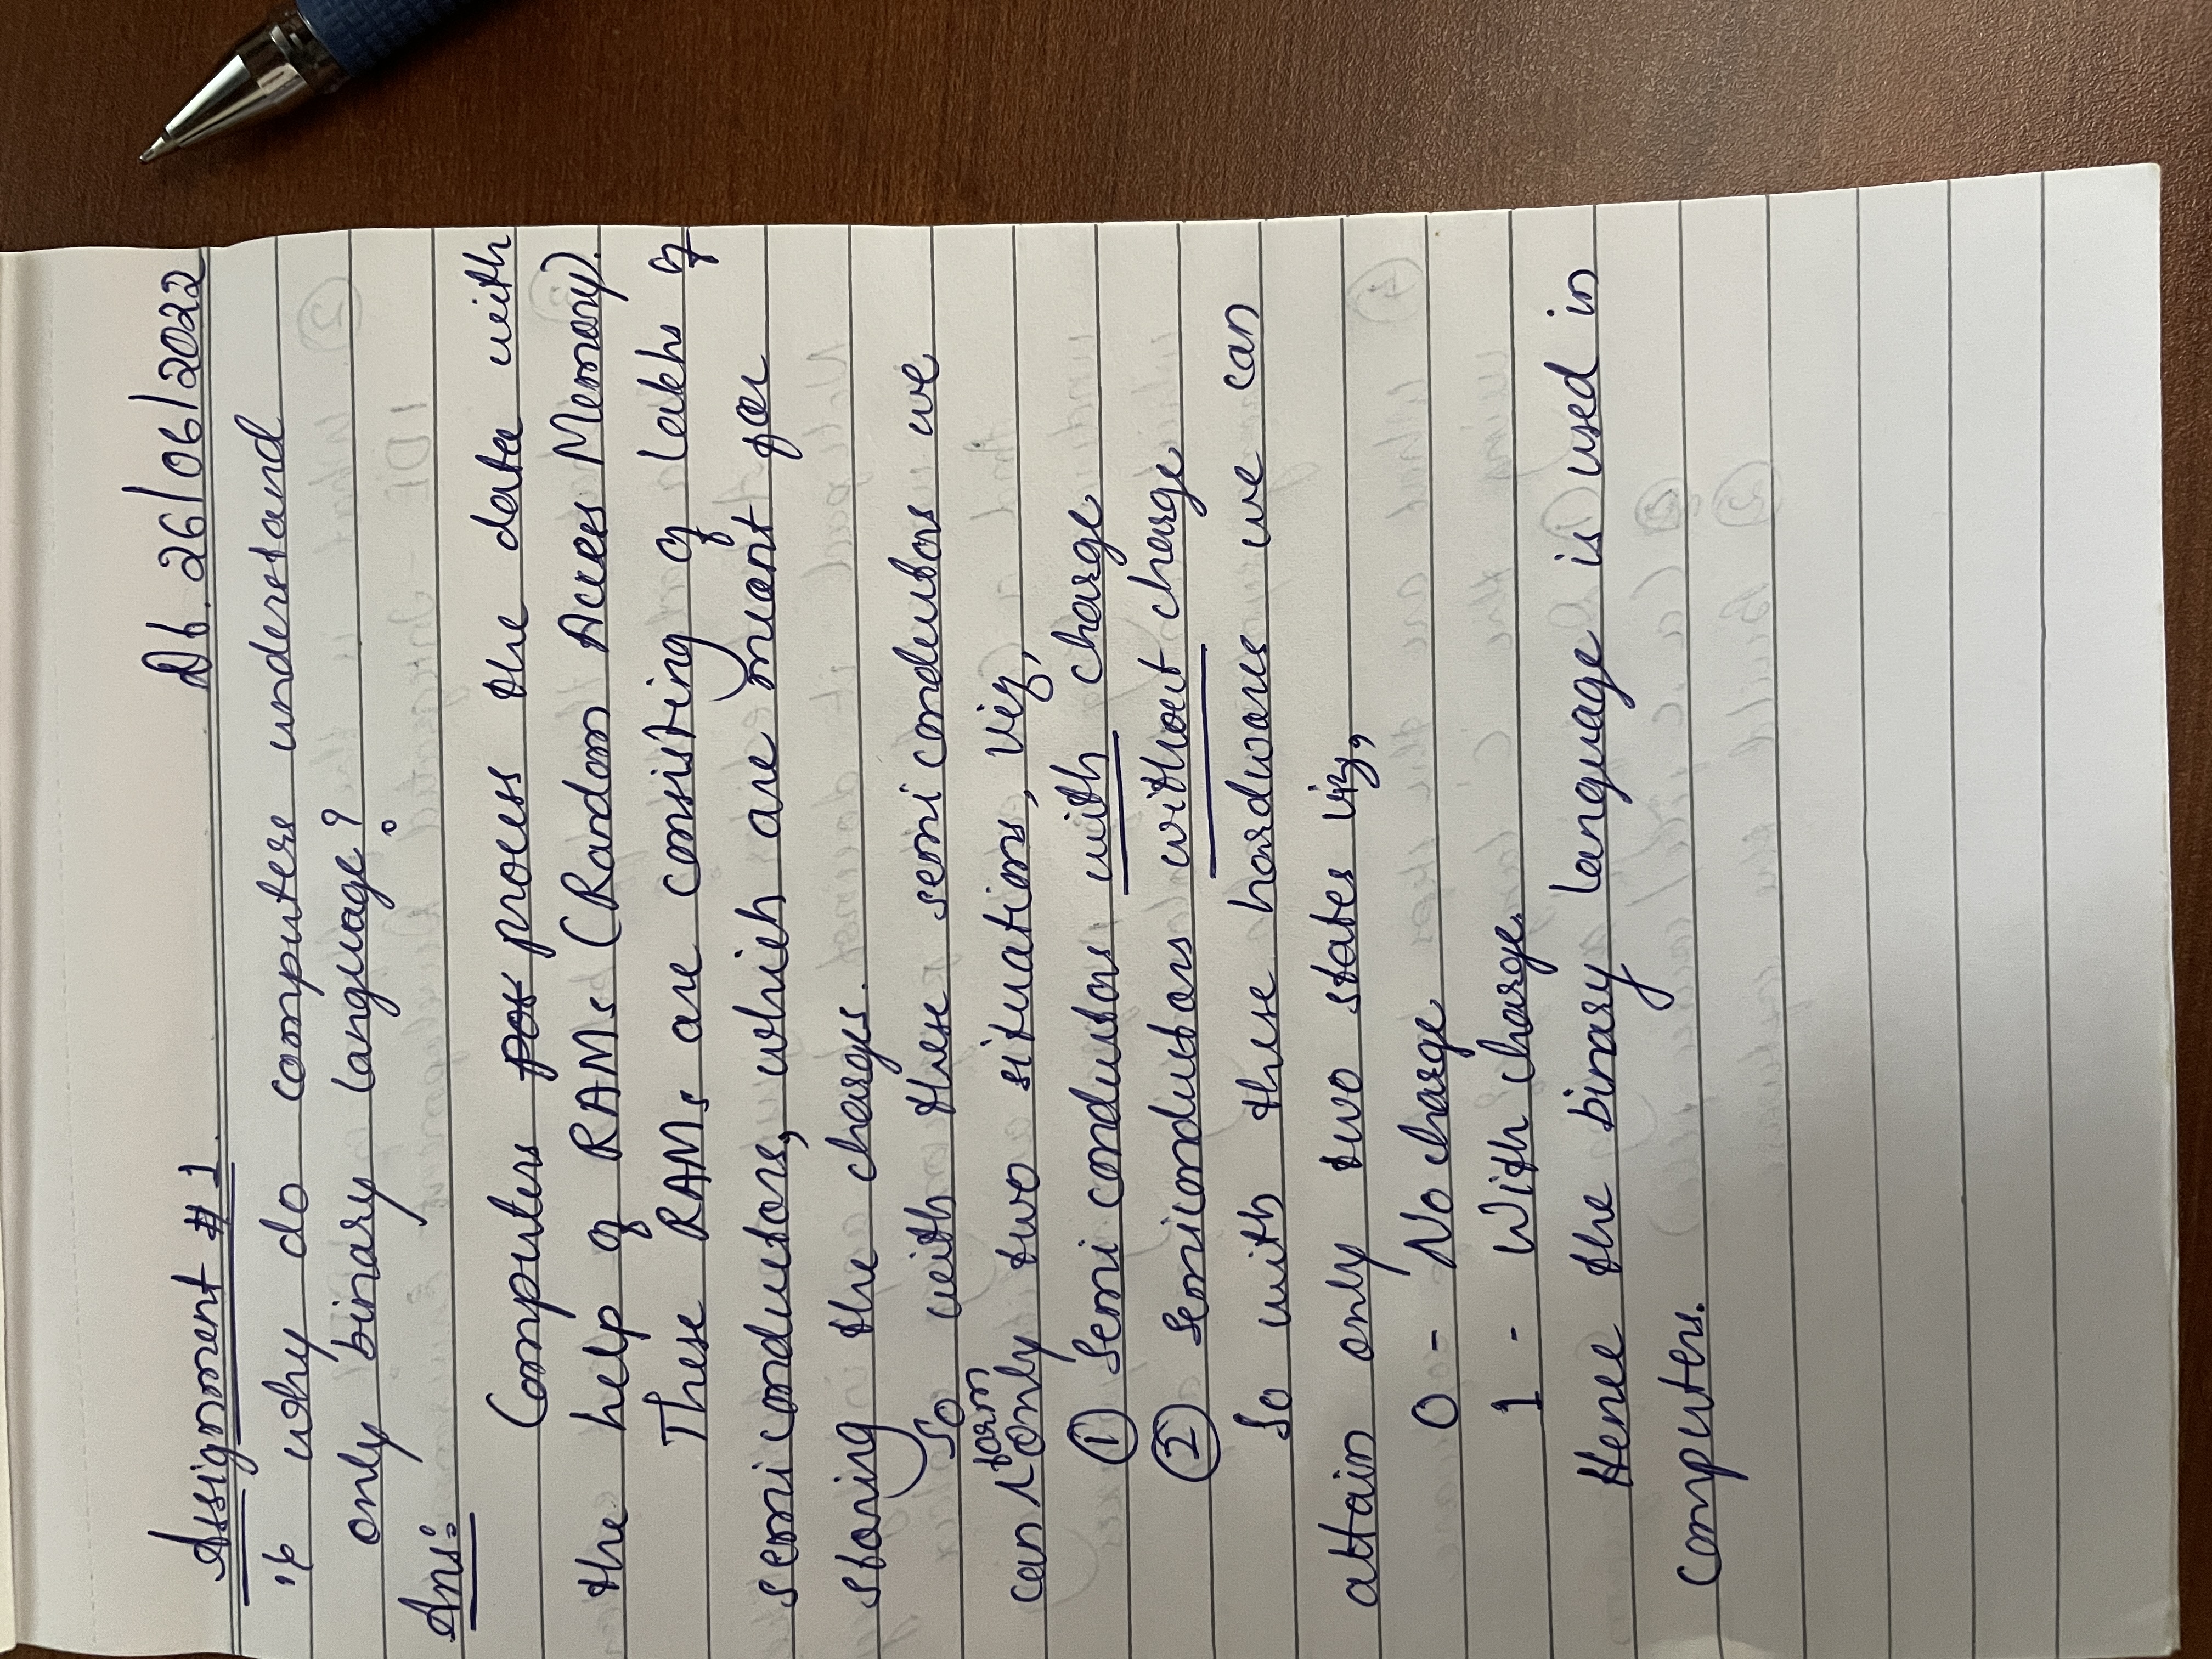 Assignment #1. Dt. 26/06/2022
why do computers understand
only binary language?
Ans:
Computers process the data with
the help of RAMs (Random Access Memory).
These RAMs are consisting of lakhs of
semiconductors, which are meant for
storing the charges.
So with these semiconductors we
form
can only two situations, viz,
① Semiconductors with charge
② Semiconductors without charge
So with these hardwares we can
attain only two states viz,
0 - No charge
1 - With charge.
Hence the binary language is used in
computers.